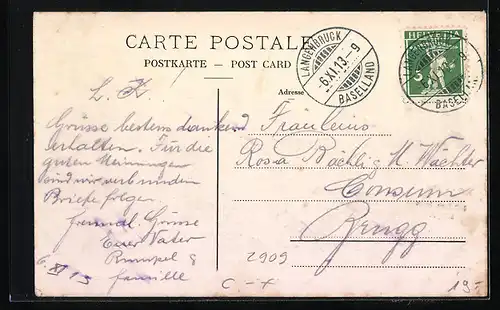 CARTE POSTALE
POSTKARTE - POST CARD
LANGENBRUCK
-6.XI.13-9
BASELLAND
HELVETIA
5
BASELLAND
Adresse
L. K.
Grüsse bestens dankend
erhalten. Für die
guten Meinungen
sind wir verbunden
Briefe folgen
freundl. Grüsse
Euer Vater
Rumpel &
Familie
6. XI 13
Fräuleins
Rosa Bächli & M. Wächter
Consum
Brugg
2909
C -x
19-